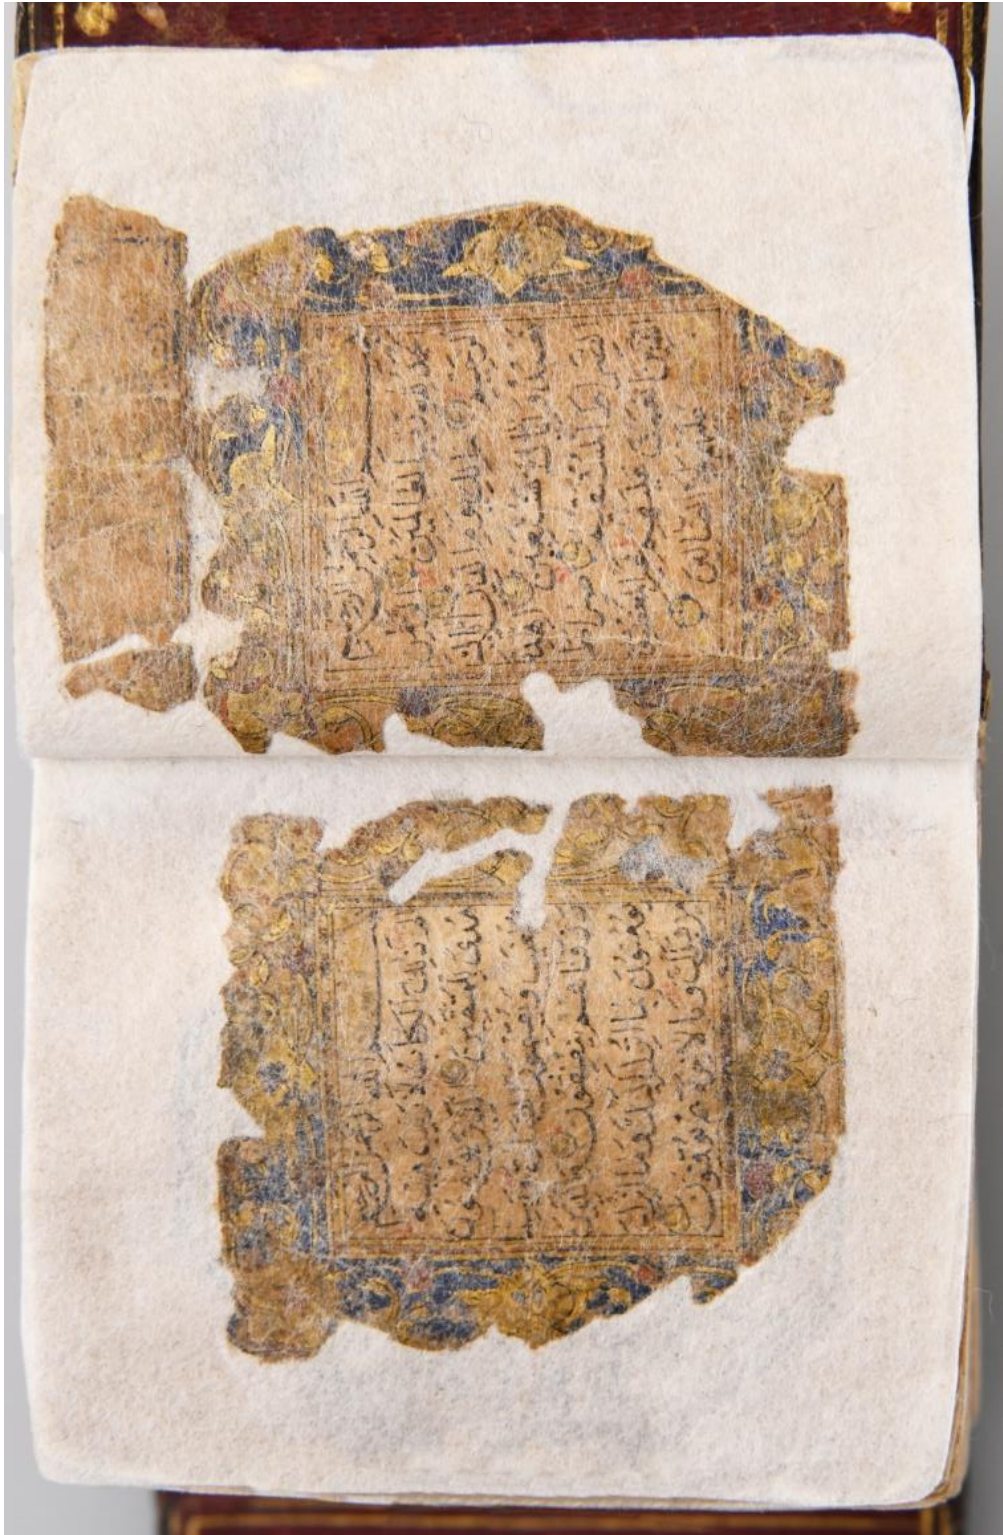 بسم الله الرحمن الرحيم
الحمد لله رب العالمين الرحمن
الرحيم ملك يوم الدين اياك
نعبد واياك نستعين اهدنا
الصراط المستقيم صراط
الذين انعمت عليهم غير المغضوب
عليهم ولا الضالين
بسم الله الرحمن الرحيم
الم ذلك الكتاب لا ريب فيه
هدى للمتقين الذين يؤمنون
ويقيمون الصلوة
رزقناهم ينفقون والذين
يؤمنون بما انزل اليك وما انزل
من قبلك وبالاخرة هم يوقنون